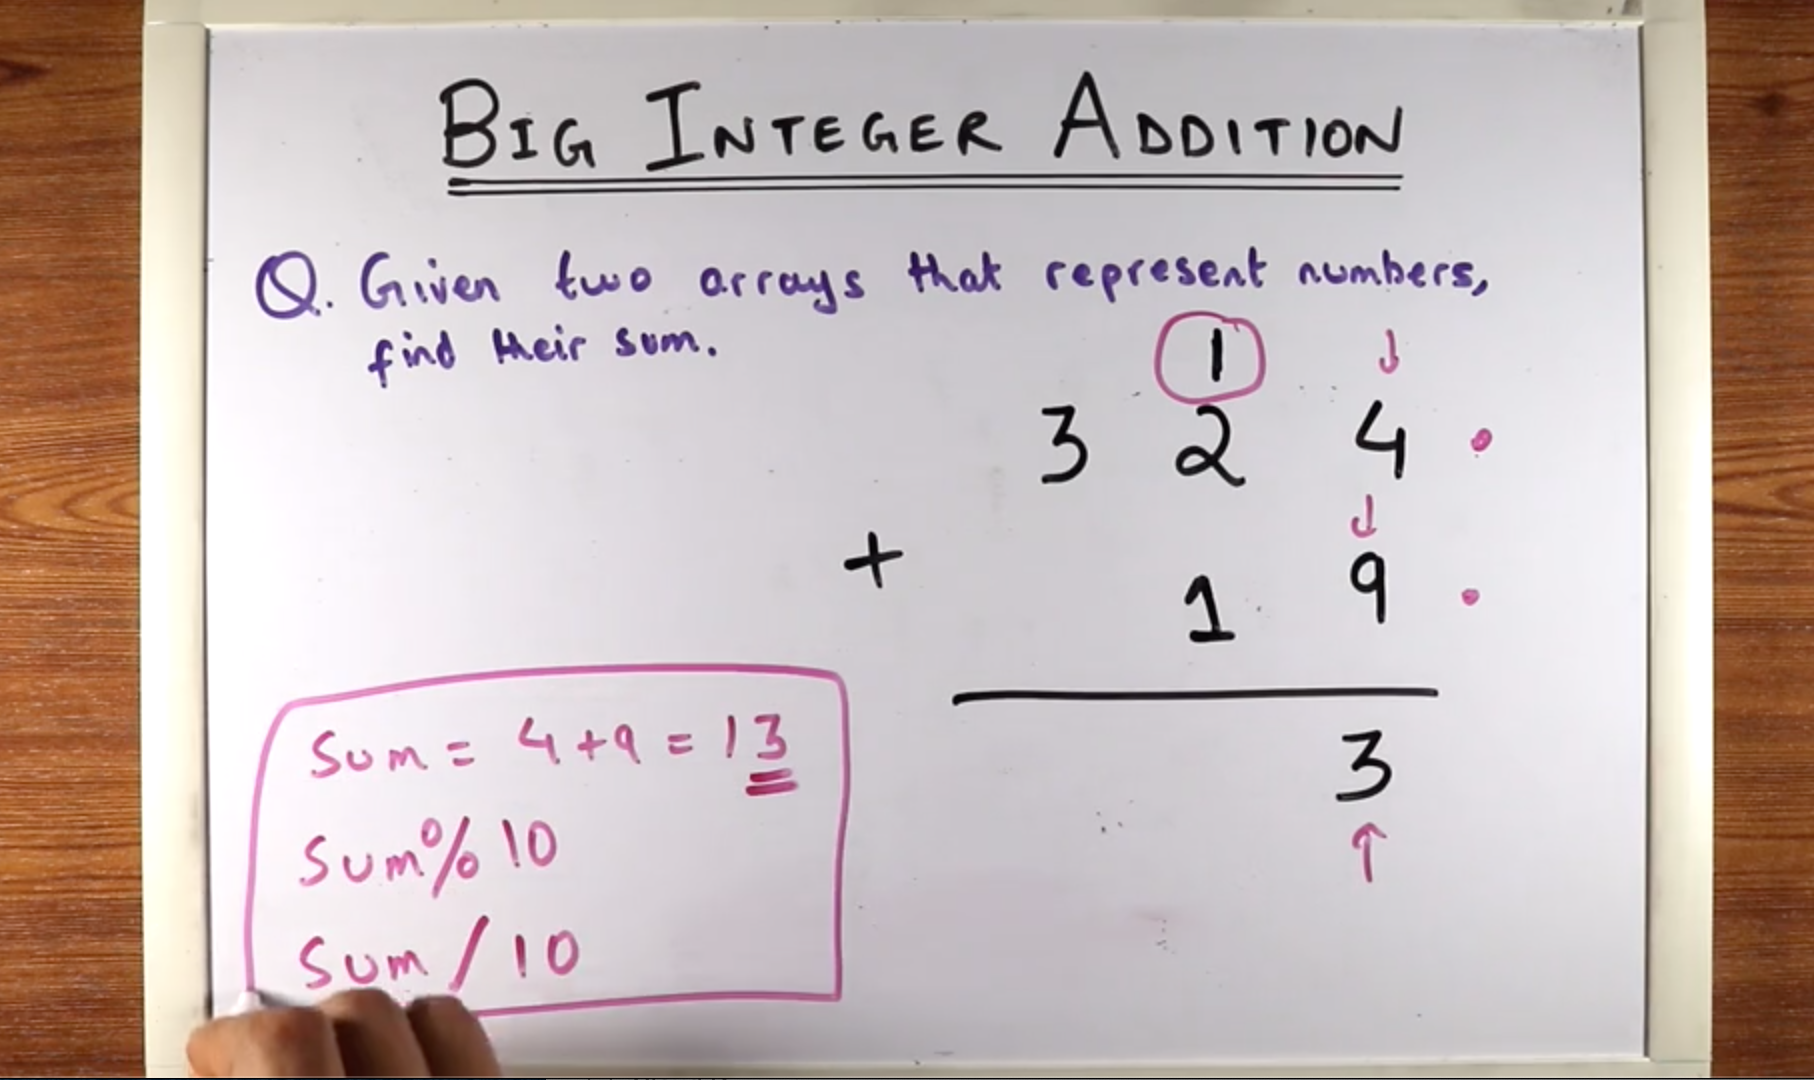 BIG INTEGER ADDITION
Q. Given two arrays that represent numbers,
find their sum.
1 ↓
3 2 4 •
↓
+ 1 9 •
3
↑
Sum = 4+9 = 13
Sum % 10
Sum / 10